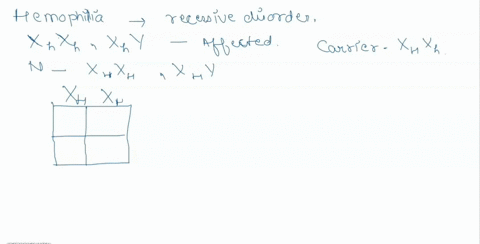 Hemophilia → recessive disorder.
XhXh, XhY — Affected. Carrier - XHXh
N — XHXH, XHY
XH XH